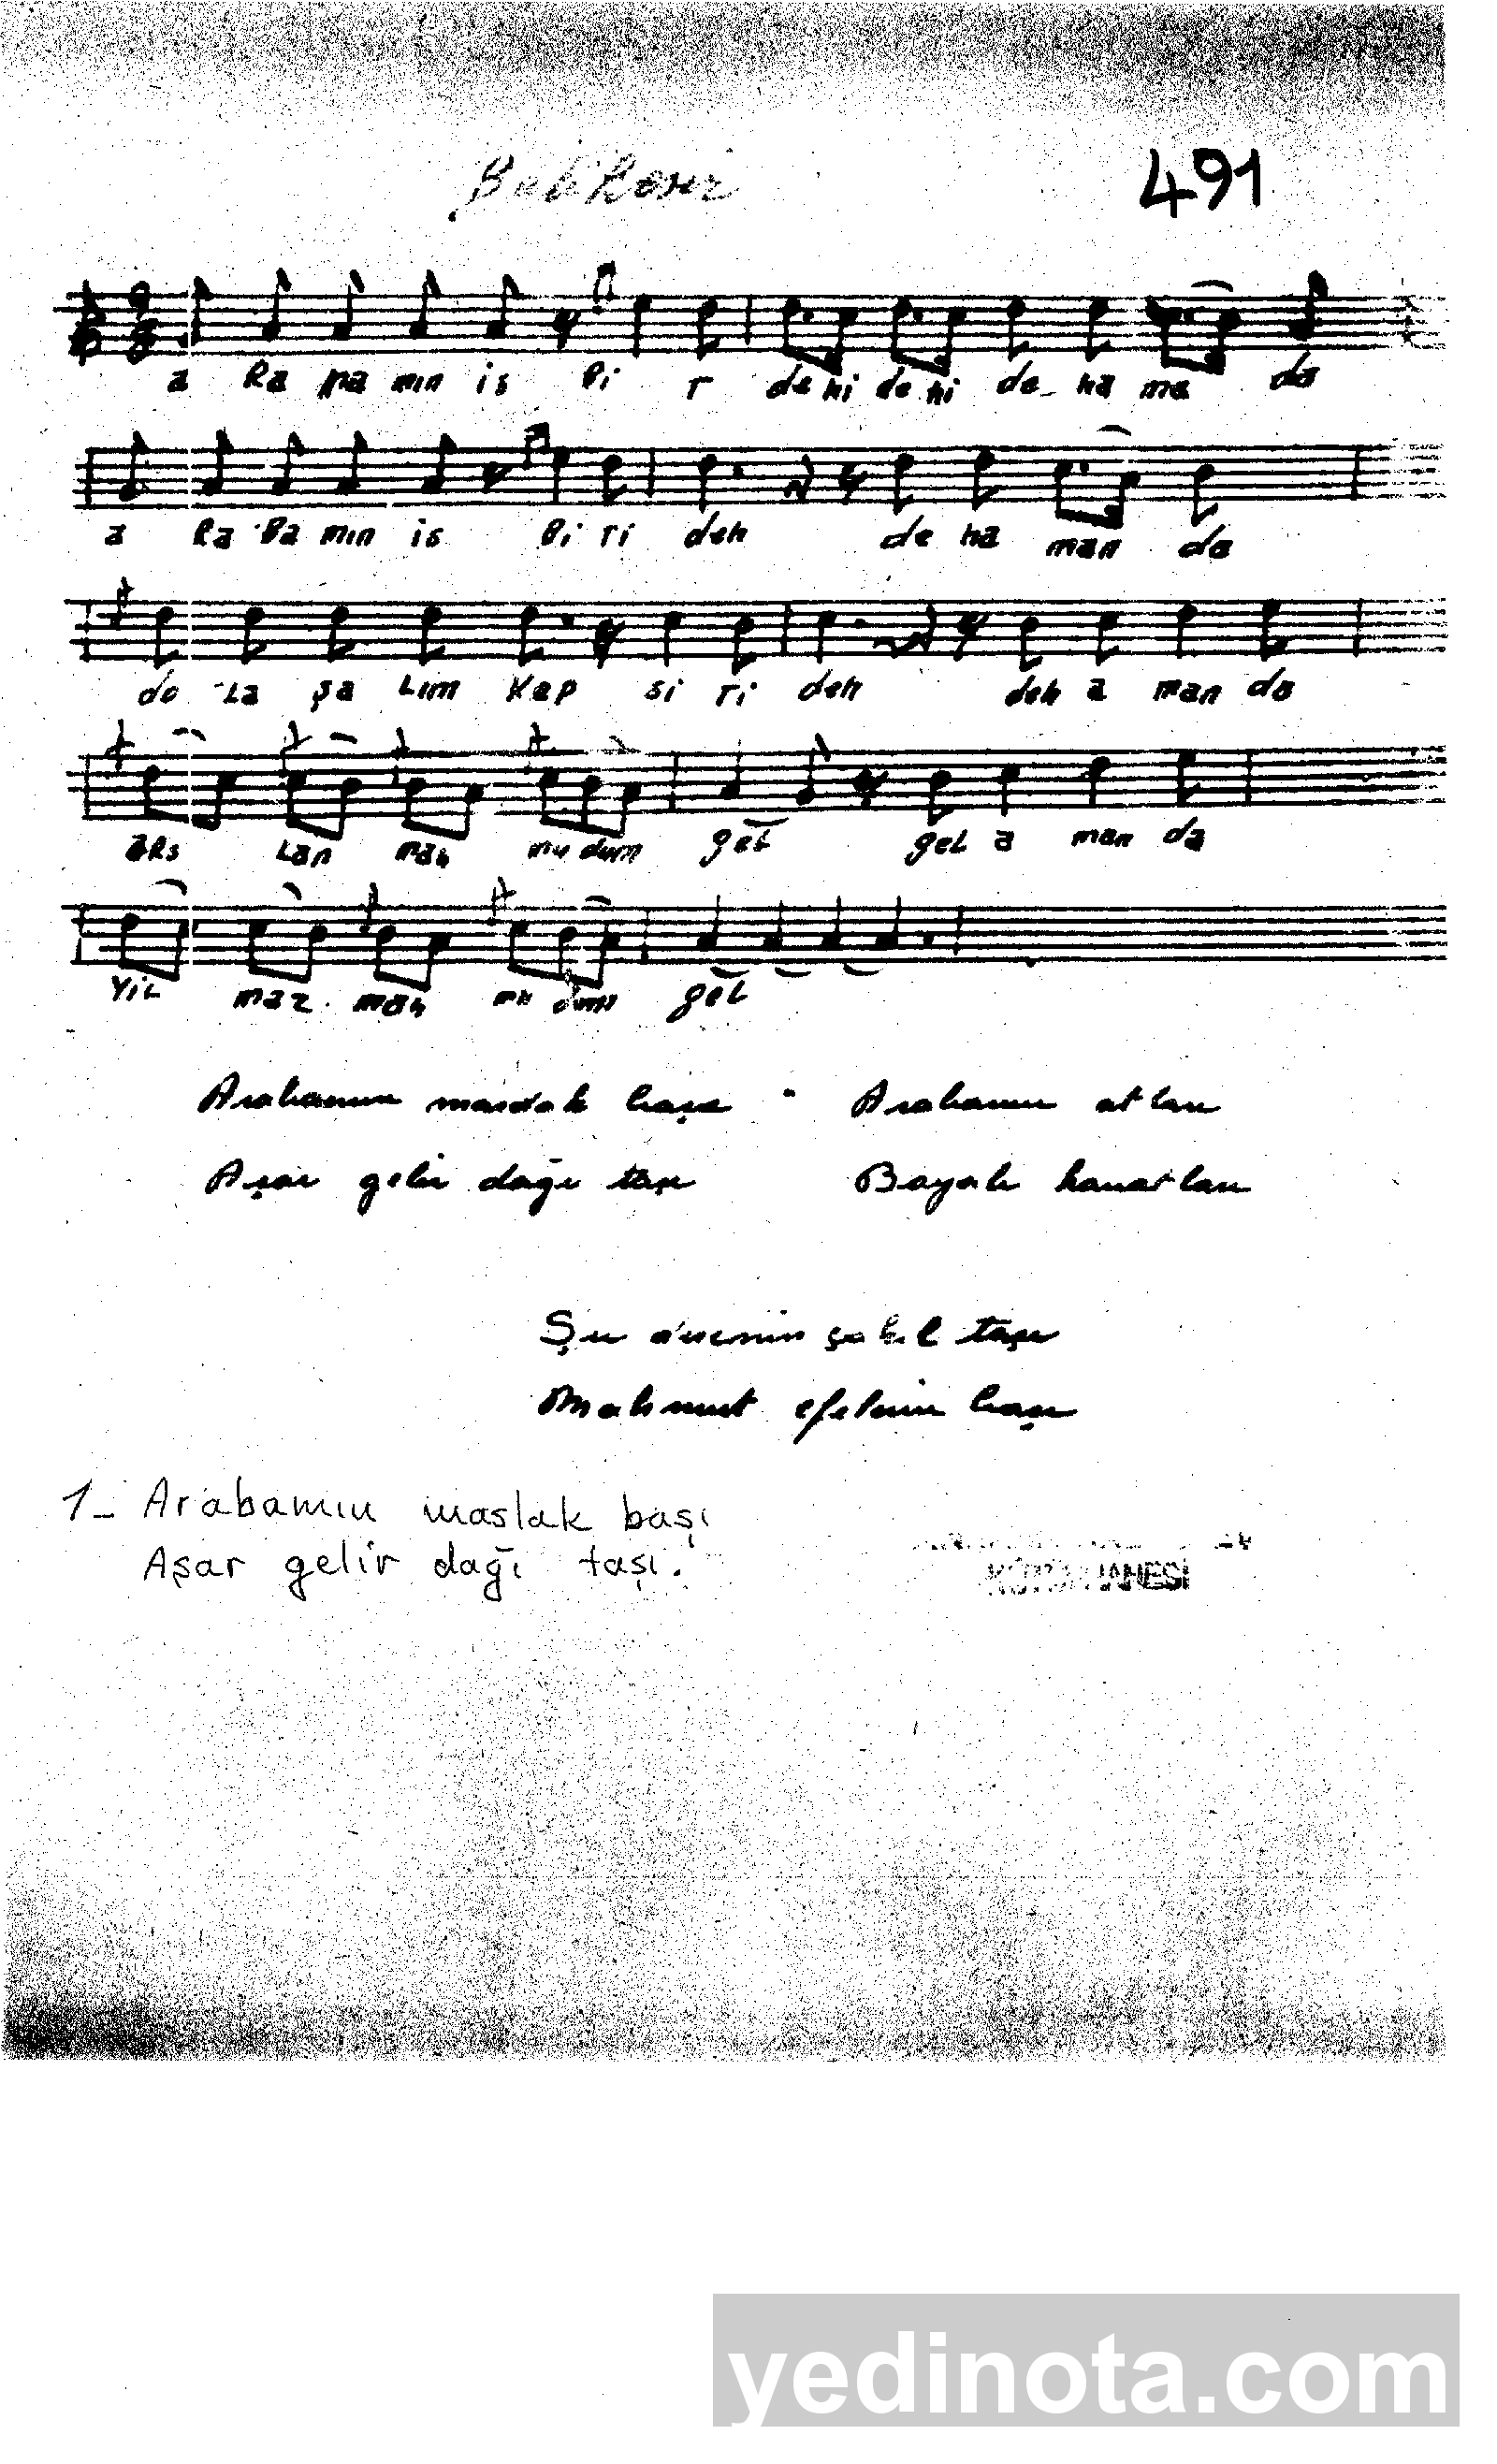 Balıkesir
491
a Ra pa min is Bi r de hi de hi de ha ma da
a Ra Ba min is Bi ri deh de ha man da
do La şa Lım Kep si ri deh deh a man da
ars Lan mah mu dum gel gel a man da
Yil maz mah mu dum gel
Arabamın başı Arabamın atları
Aşar gelir dağı taşı Boyalı kanatları
Şu derenin çakıl taşı
Mahmut efelerin başı
1- Arabamın maslak başı
Aşar gelir dağı taşı.
KÜTÜPHANESİ
yedinota.com